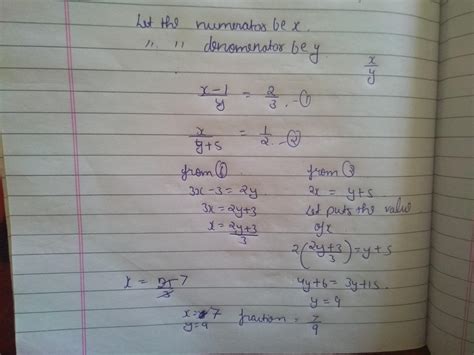 Let the numerator be x.
" " denomenator be y
x/y
(x-1)/y = 2/3 -①
x/(y+5) = 1/2 -②
from ①
3x-3=2y
3x=2y+3
x=(2y+3)/3
from ②
2x = y+5
Let puts the value
of x
2((2y+3)/3)=y+5
4y+6=3y+15
y=9
x = 21/3 7
x=7
y=9
fraction = 7/9